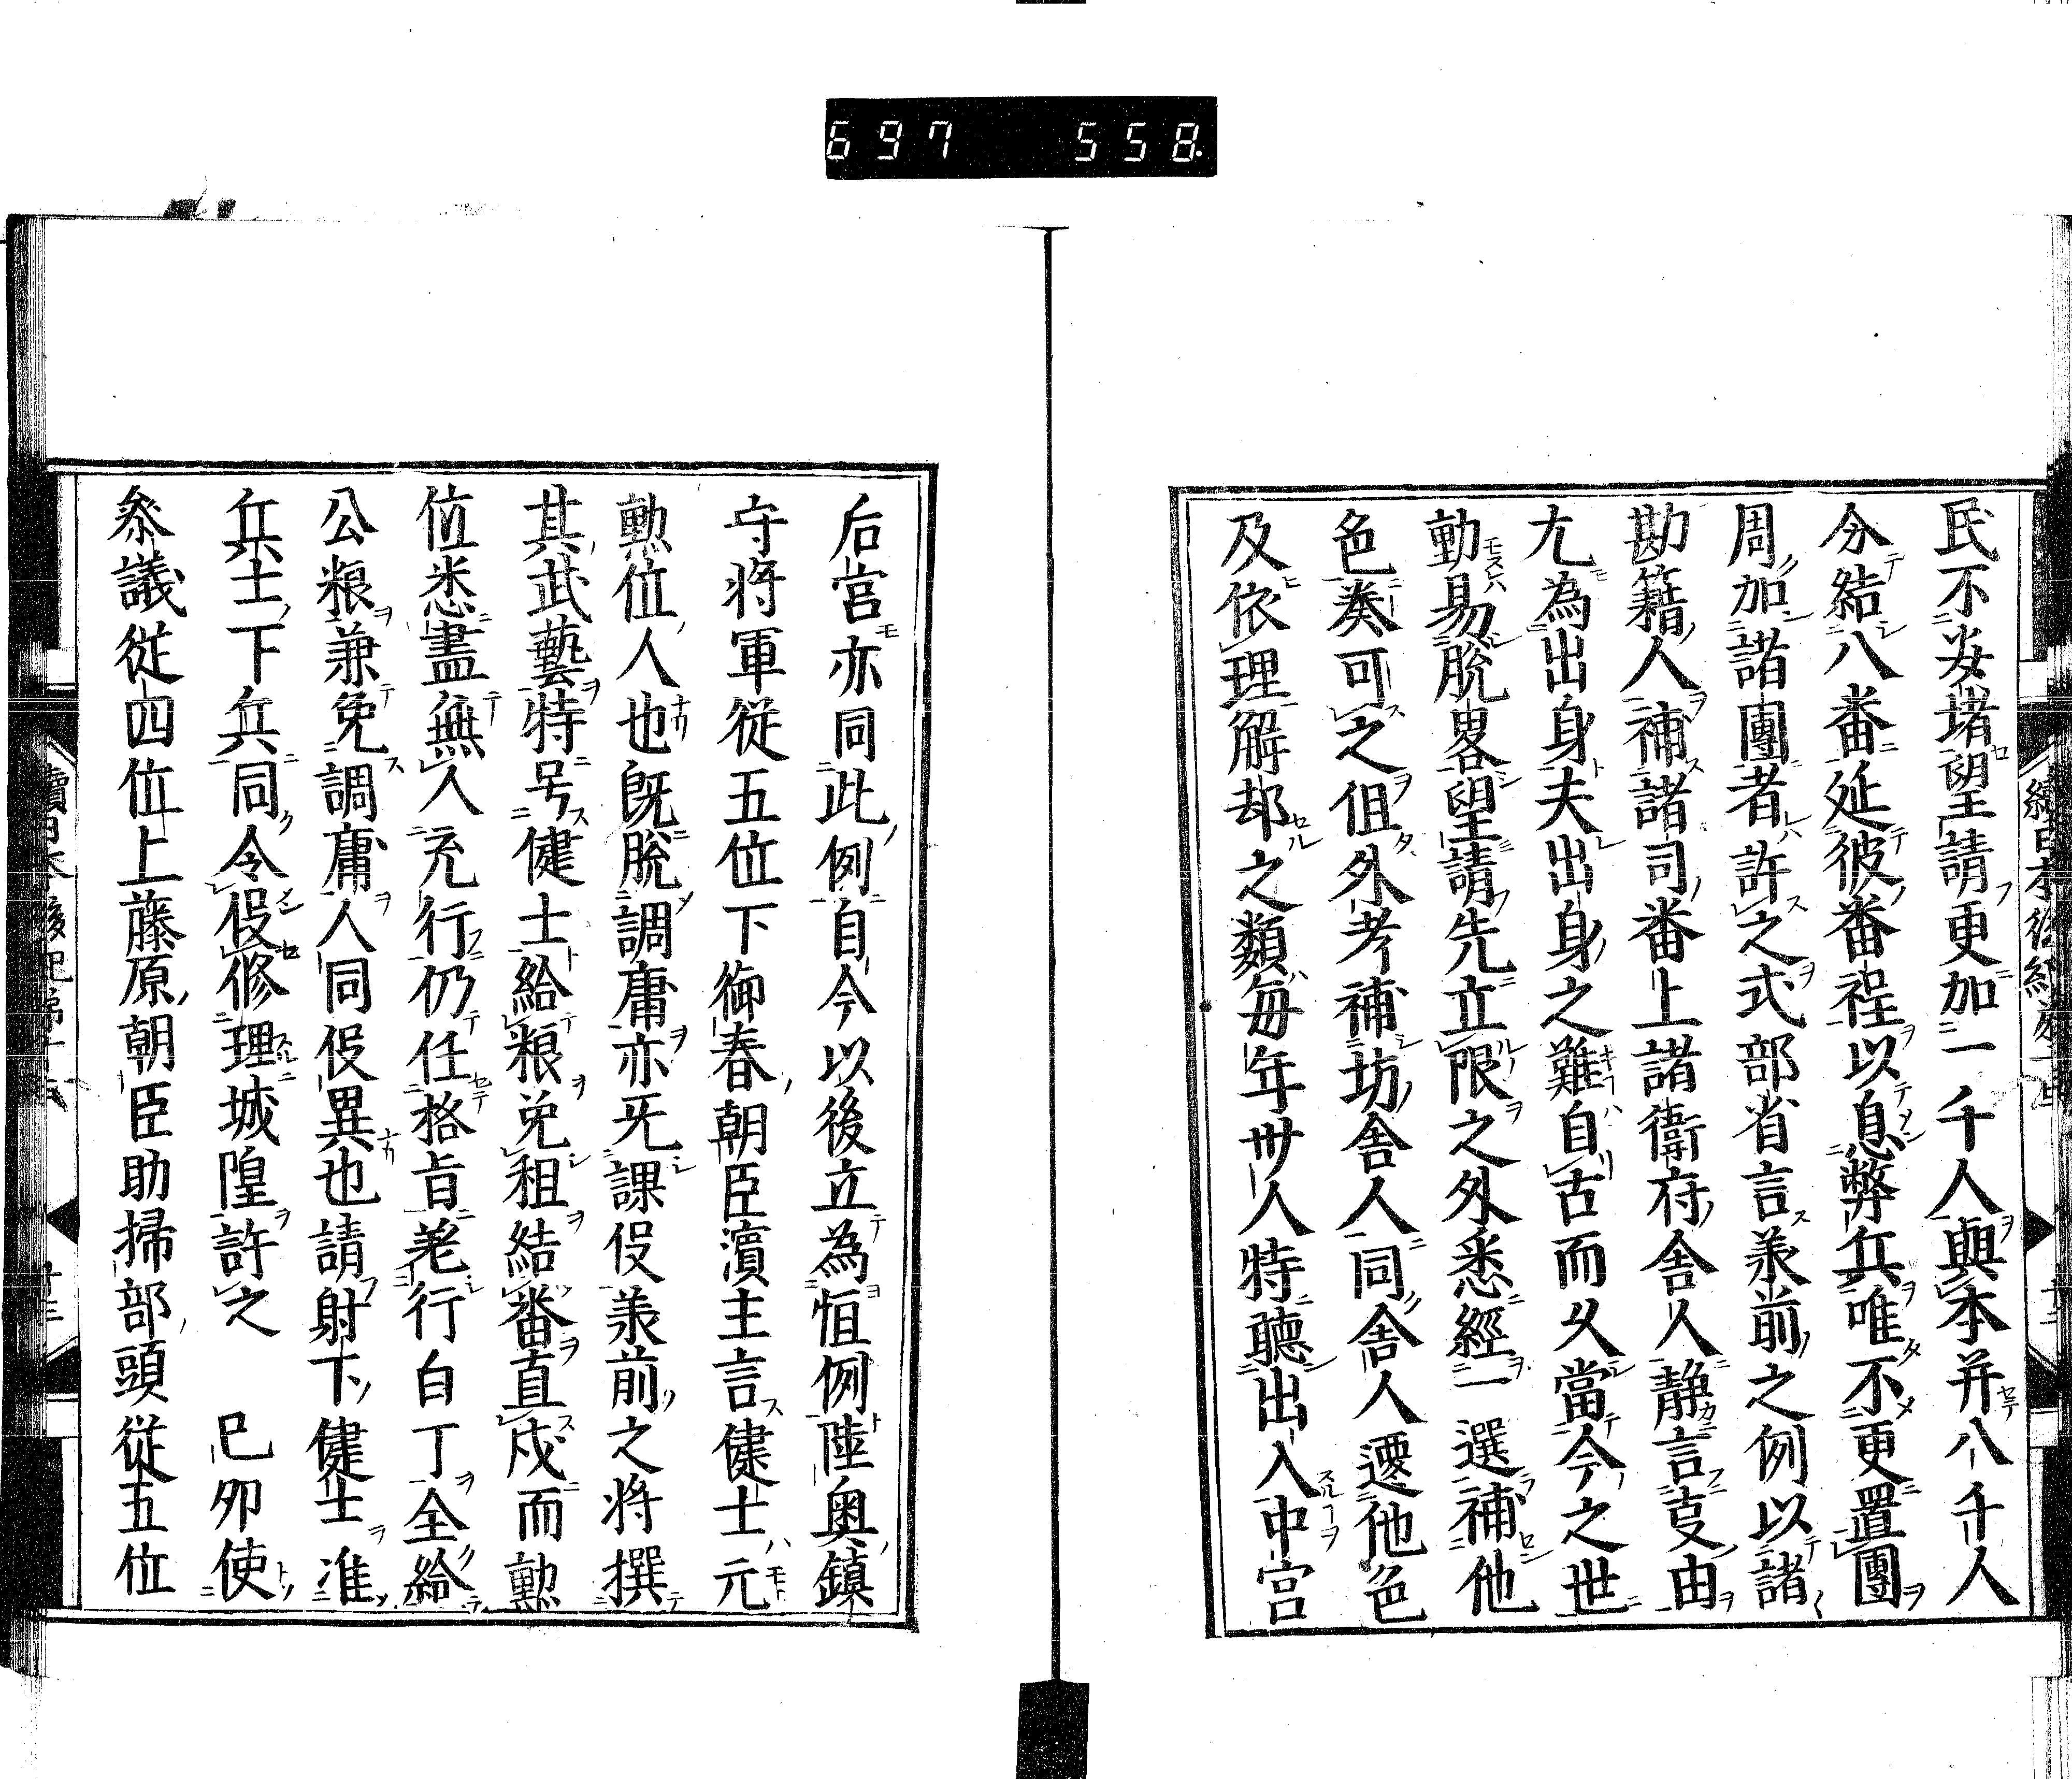 697 558
民不安堵望請更加一千人與本并八千人
分結八番延彼番程以息弊兵唯不更置團
周加諸團者許之式部省言承前之例以諸
勘籍人補諸司番上諸衛府舎人静言㕝由
尤為出身夫出身之難自古而久當今之世
動易脱畧望請先立限之外悉經一選補他
色奏可之但外考補坊舎人同舎人遷他色
及依理解却之類毎年卅人特聽出入中宮
后宮亦同此例自今以後立為恒例陸奥鎮
守将軍従五位下御春朝臣濱主言健士元
勲位人也既脱調庸亦无課役承前之将撰
其武藝特号健士給粮免租結番直戍而勲
位悉盡無人充行仍任格旨差行白丁全給
公粮兼免調庸人同役異也請射下健士准
兵士下兵同令役修理城隍許之 己卯使
参議従四位上藤原朝臣助掃部頭従五位